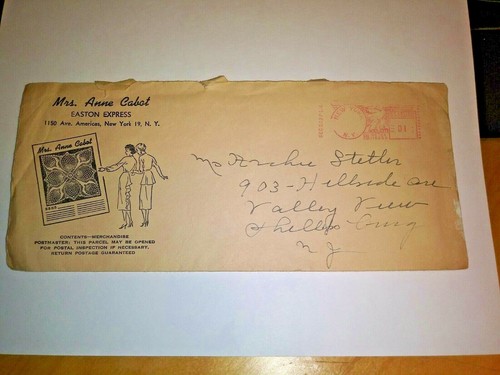 Mrs. Anne Cabot
EASTON EXPRESS
1150 Ave. Americas, New York 19, N. Y.
Mrs. Anne Cabot
CONTENTS—MERCHANDISE
POSTMASTER: THIS PARCEL MAY BE OPENED
FOR POSTAL INSPECTION IF NECESSARY,
RETURN POSTAGE GUARANTEED
NEW
N.Y.
Archie Stetler
903-Hillside ave
Valley View
Phillips
N J